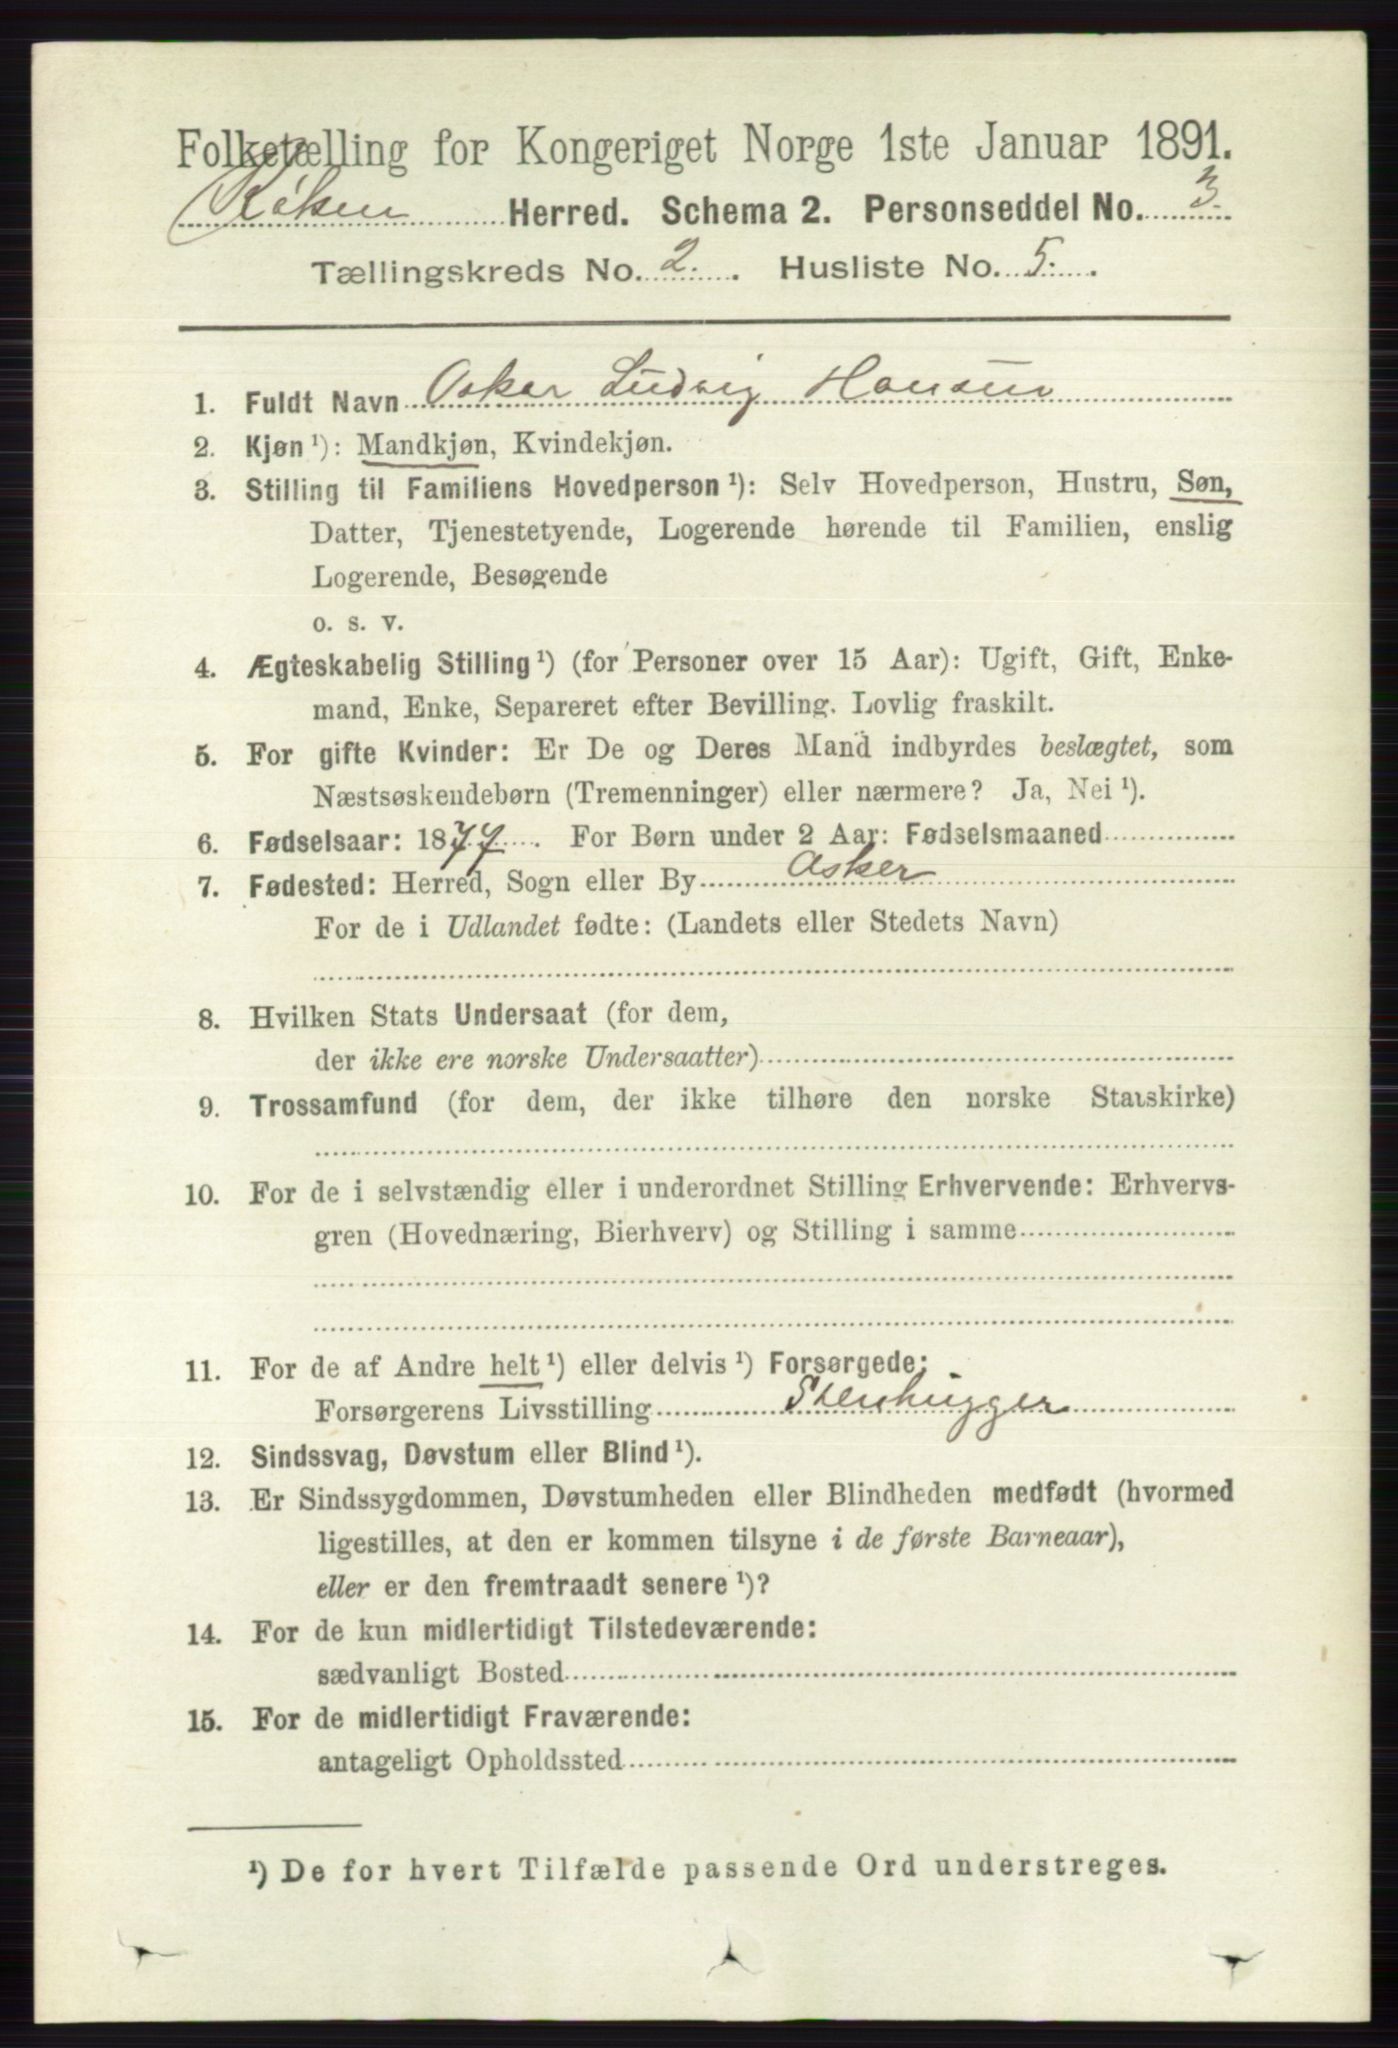 Folketælling for Kongeriget Norge 1ste Januar 1891.
Røken Herred. Schema 2. Personseddel No. 3.
Tællingskreds No. 2. Husliste No. 5.
1. Fuldt Navn Oskar Ludvig Hansen
2. Kjøn ¹): Mandkjøn, Kvindekjøn.
3. Stilling til Familiens Hovedperson ¹): Selv Hovedperson, Hustru, Søn,
Datter, Tjenestetyende, Logerende hørende til Familien, enslig
Logerende, Besøgende
o. s. v.
4. Ægteskabelig Stilling ¹) (for Personer over 15 Aar): Ugift, Gift, Enke-
mand, Enke, Separeret efter Bevilling. Lovlig fraskilt.
5. For gifte Kvinder: Er De og Deres Mand indbyrdes beslægtet, som
Næstsøskendebørn (Tremenninger) eller nærmere? Ja, Nei ¹).
6. Fødselsaar: 1877. For Børn under 2 Aar: Fødselsmaaned
7. Fødested: Herred, Sogn eller By Asker
For de i Udlandet fødte: (Landets eller Stedets Navn)
8. Hvilken Stats Undersaat (for dem,
der ikke ere norske Undersaatter)
9. Trossamfund (for dem, der ikke tilhøre den norske Statskirke)
10. For de i selvstændig eller i underordnet Stilling Erhvervende: Erhvervs-
gren (Hovednæring, Bierhverv) og Stilling i samme
11. For de af Andre helt ¹) eller delvis ¹) Forsørgede:
Forsørgerens Livsstilling Stenhugger
12. Sindssvag, Døvstum eller Blind ¹).
13. Er Sindssygdommen, Døvstumheden eller Blindheden medfødt (hvormed
ligestilles, at den er kommen tilsyne i de første Barneaar),
eller er den fremtraadt senere ¹)?
14. For de kun midlertidigt Tilstedeværende:
sædvanligt Bosted
15. For de midlertidigt Fraværende:
antageligt Opholdssted
¹) De for hvert Tilfælde passende Ord understreges.